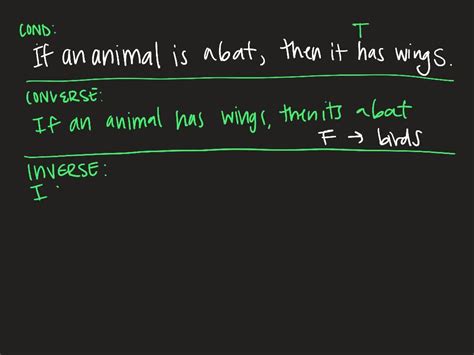 COND: T
If an animal is a bat, then it has wings.
CONVERSE:
If an animal has wings, then its a bat
F → birds
INVERSE:
I